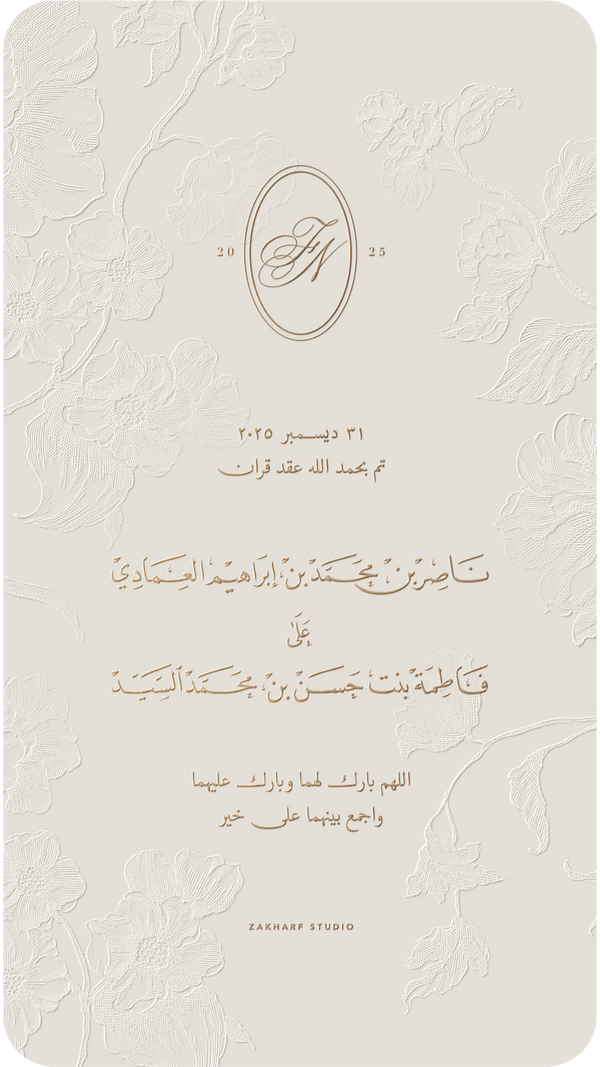 FN
20 25
٣١ ديسمبر ٢٠٢٥
تم بحمد الله عقد قران
نَاصِر بْن مُحَمَّد بْن إِبْرَاهِيْم العِمَادِيْ
عَلَىٰ
فَاطِمَة بِنْت حَسَن بْن مُحَمَّد السَّيِّد
اللهم بارك لهما وبارك عليهما
واجمع بينهما على خير
ZAKHARF STUDIO